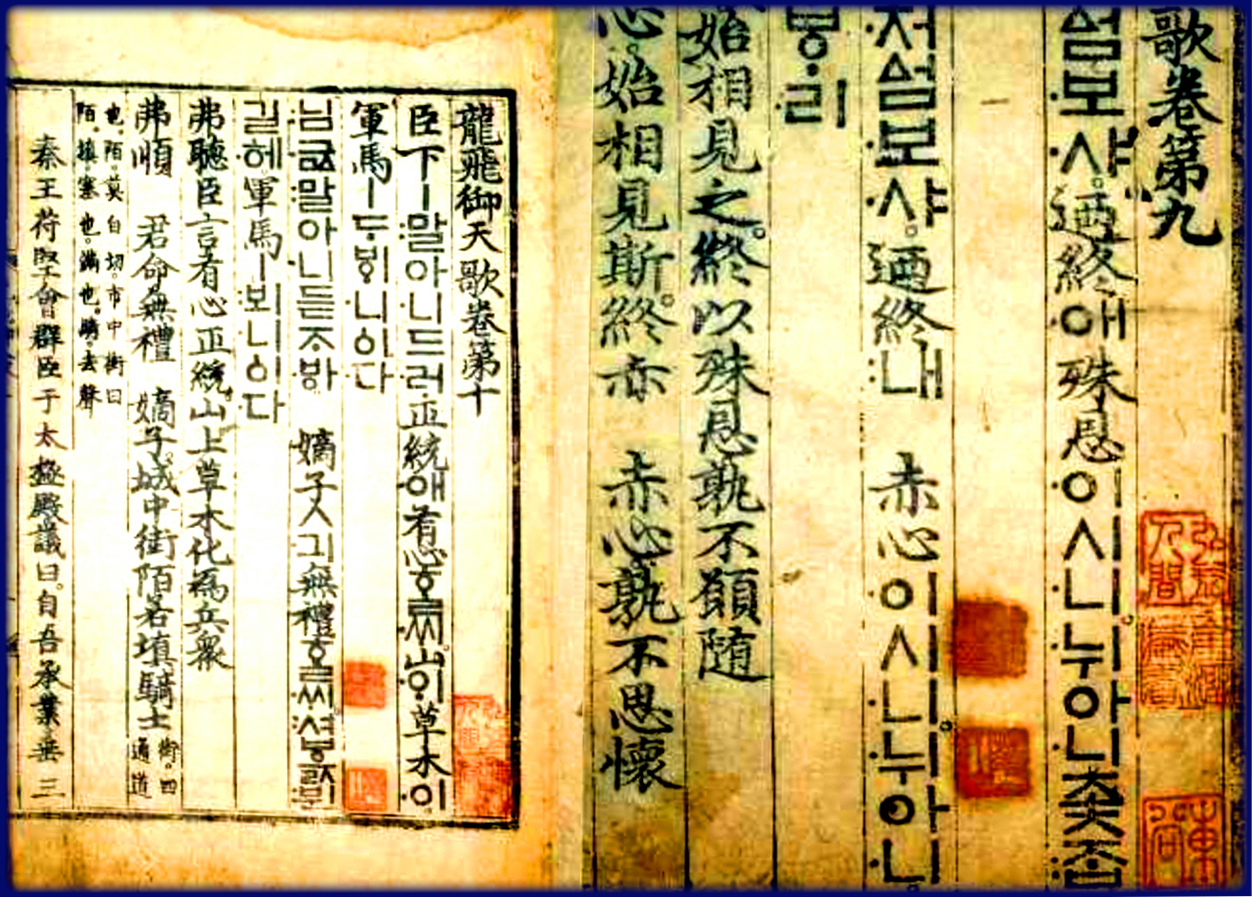 歌卷第九
셤보샤。迺終애殊恩이시니。누아니좃ᄌᆞᆸ
처ᅀᅥᆷ보샤。迺終내 赤心이시니。누아니
ᄫᆞ리
始相見之。終以殊恩孰不願随
心。始相見斯。終亦 赤心孰不思懷
龍飛御天歌卷第十
臣下ㅣ말아니드러正統애有心ᄒᆞᆯᄊᆡ。山이草木이
軍馬ㅣᄃᆞᄫᆡ니ᅌᅵ다
님금말아니듣ᄌᆞᄫᅡ 嫡子ㅅ긔無禮ᄒᆞᆯᄊᆡ。셔ᄫᅳᆳ뷘
길헤軍馬ㅣ뵈니ᅌᅵ다
弗聽臣言有心正統。山上草木化為兵衆
弗順 君命無禮 嫡子。城中街陌若填騎士 街。四通道
也。陌。莫白切。市中街曰
陌。填。塞也。滿也。騎。去聲
秦王苻堅會群臣于太極殿議曰。自吾承業垂三